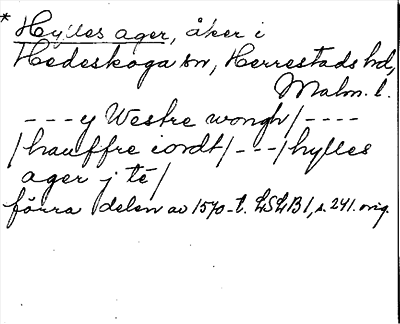 * Hylles ager, åker i
Hedeskoga sn, Herrestads hd,
Malm. l.
- - - y Westre wongh/ - - - -
/hauffre iordt/ - - -/hylles
ager j tē/
förra delen av 1570-t. LSLB 1, s. 241. orig.